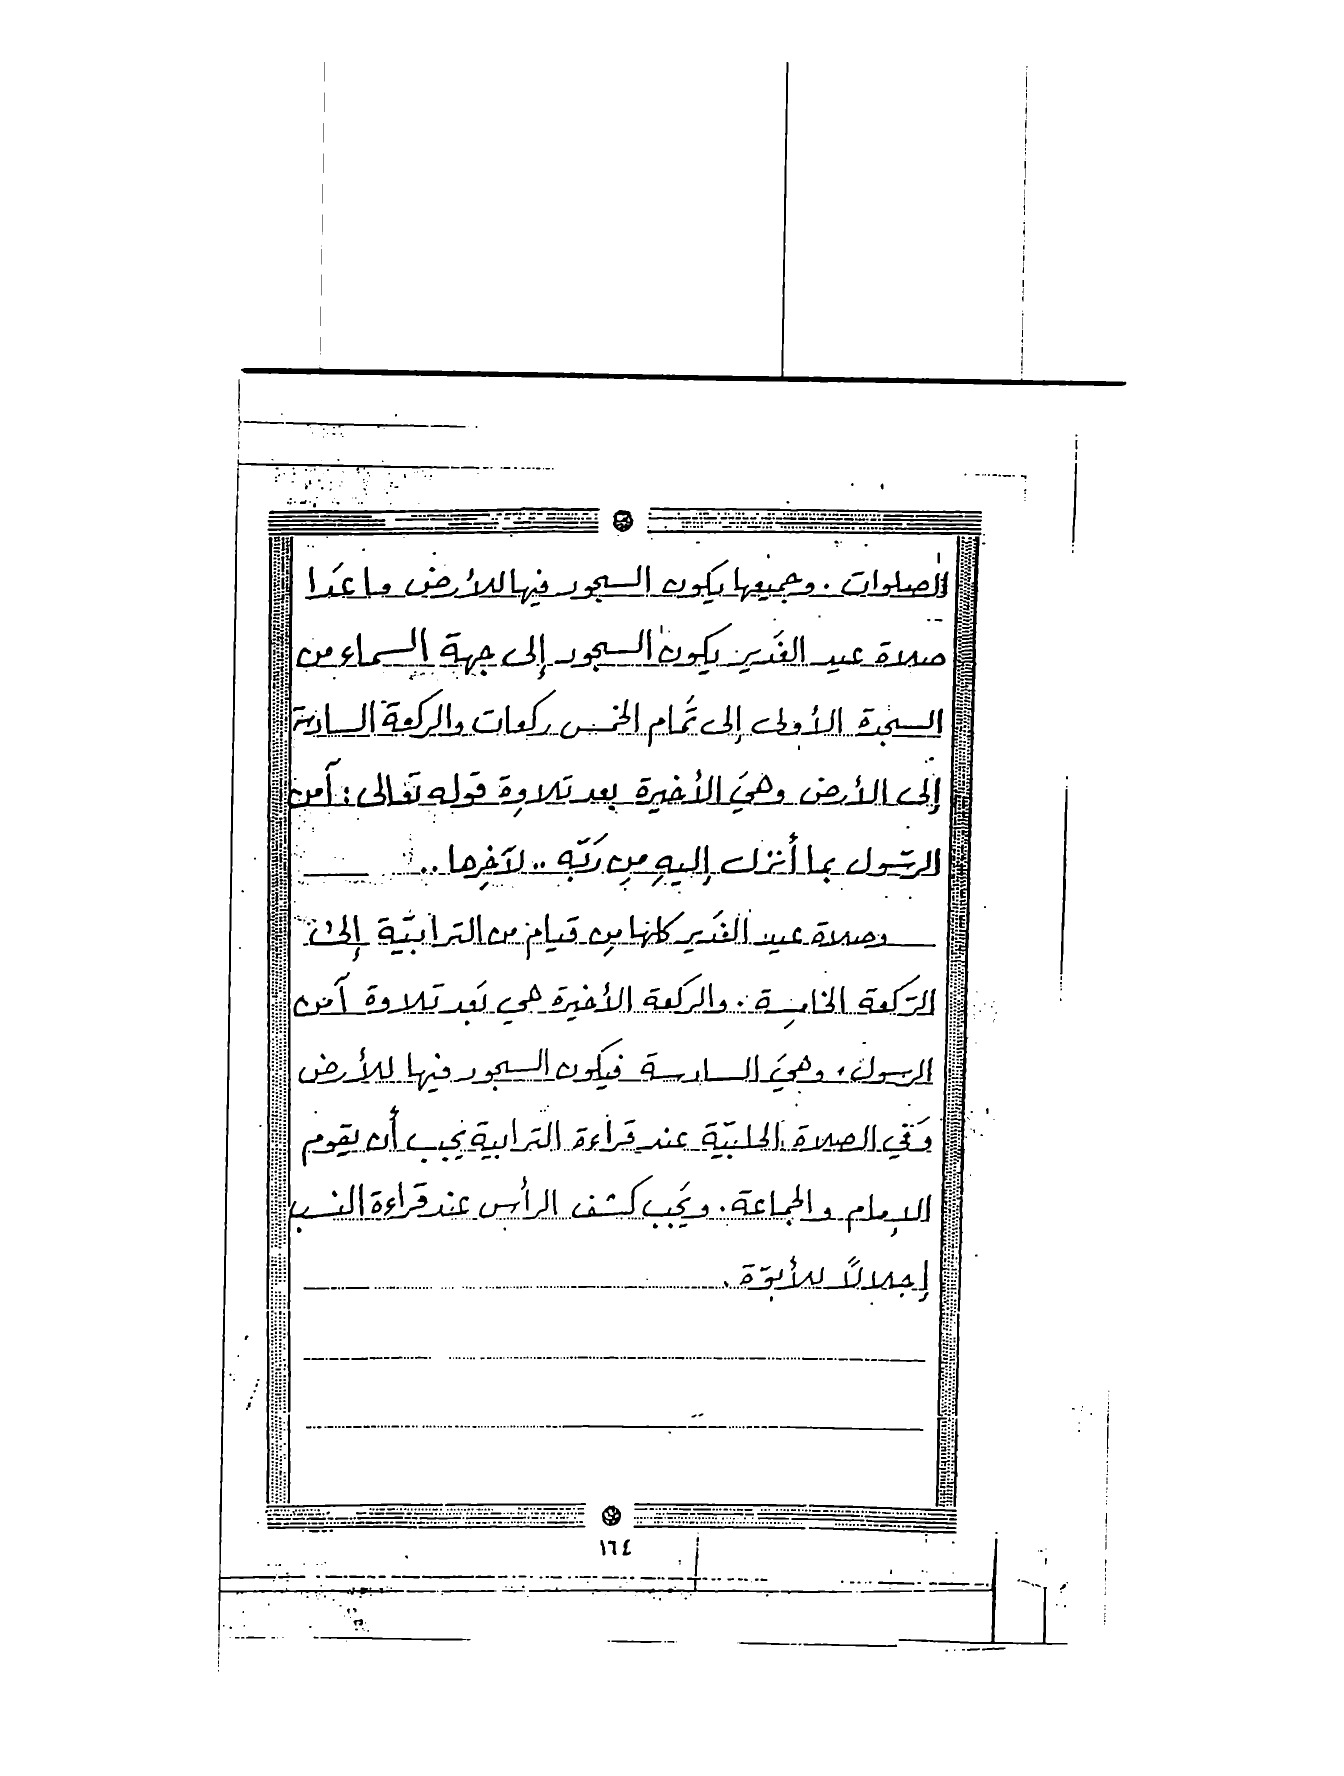 الصلوات . وجميعها يكون السجود فيها للأرض ما عَدا
صلاة عيد الغَدير يكون السجود إلى جهة السماء من
السجدة الأولى إلى تَمام الخمس ركعات والركعة السادسة
إلى الأرض وهيَ الأخيرة بعد تلاوة قوله تعَالى : آمن
الرسّول بما أنزل إليهِ مِن رَبّه .. لآخِرها ..
وصلاة عيد الغَدير كلها مِن قيام من الترابيّة إلى
الرّكعة الخامِسة . والركعة الأخيرة هي بَعد تلاوة آمن
الرسول ، وهيَ السادسة فيكون السجود فيها للأرض
وَفي الصلاة الحلبيّة عند قراءة الترابية يجب أن يقوم
الإمام والجماعة . ويَجب كشف الرأس عند قراءة النسب
إجلالاً للأبوّة .
١٦٤